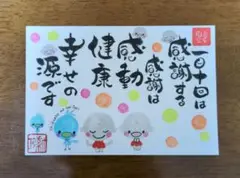 一日十回は
感謝する
感謝は
感動
健康
幸せの
源です